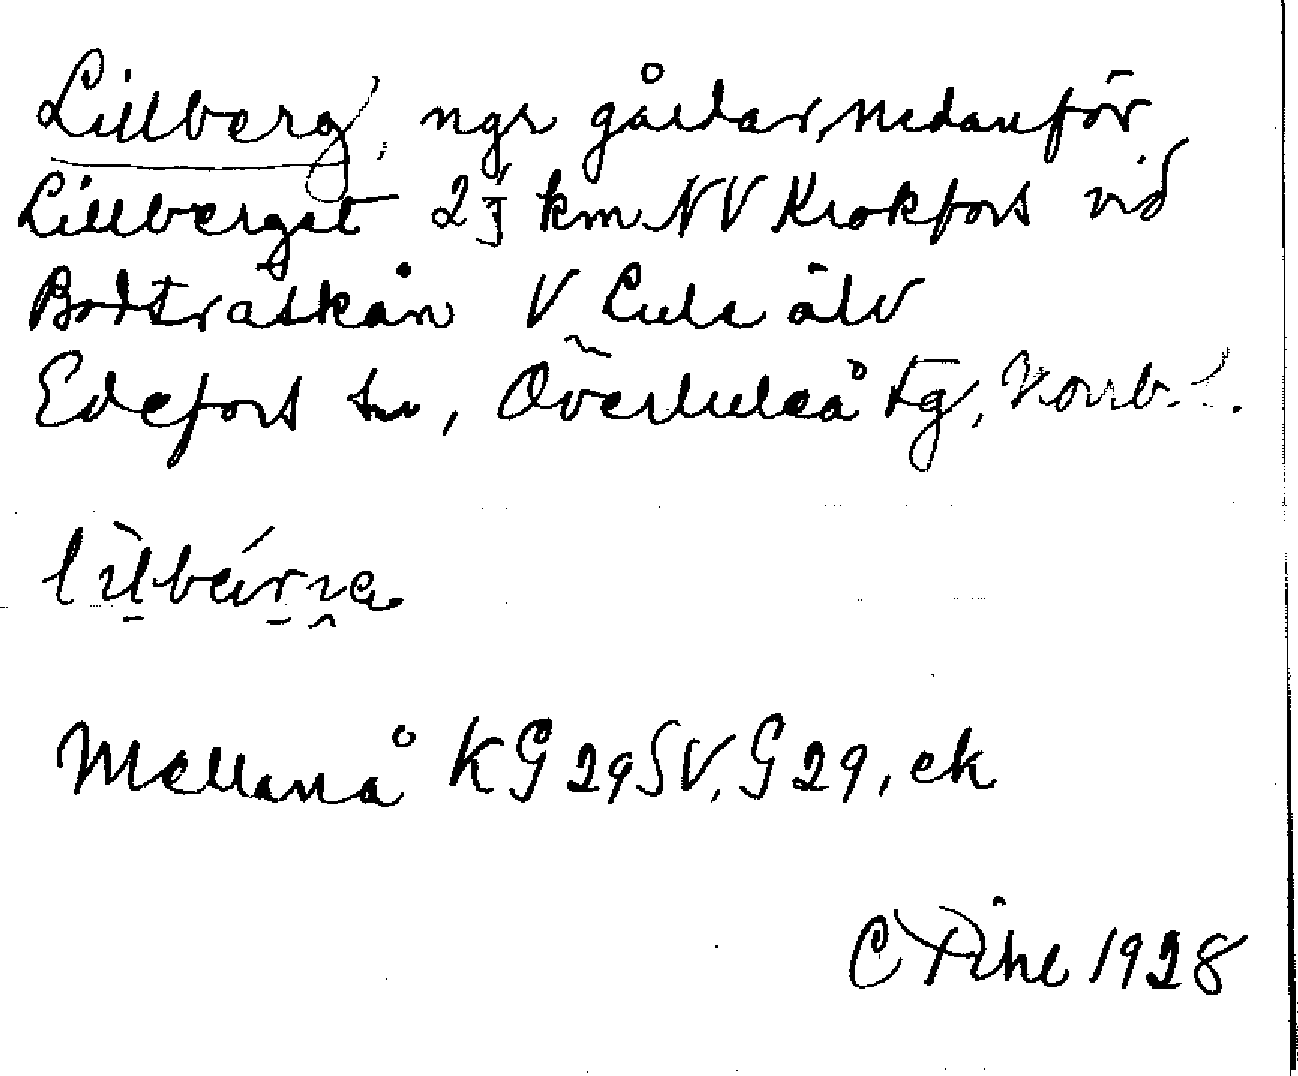 Lillberg, ngr gårdar, nedanför
Lillberget 2 km NV Krokfors vid
Bodträskån V Lule älv
Edefors sn, Överluleå tg, Norrb. l.
Mellanå KG 29 SV, G 29, ek
C Pihl 1928